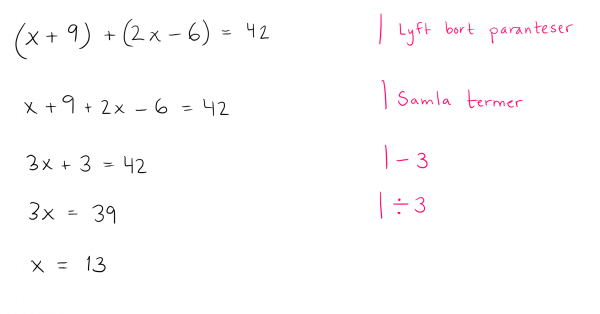 (x + 9) + (2x − 6) = 42 | Lyft bort paranteser
x + 9 + 2x − 6 = 42 | Samla termer
3x + 3 = 42 | − 3
3x = 39 | ÷ 3
x = 13